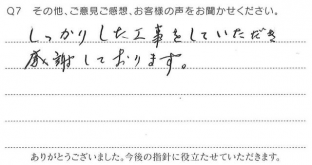 Q7 その他、ご意見ご感想、お客様の声をお聞かせください。
しっかりした工事をしていただき
感謝しております。
ありがとうございました。今後の指針に役立たせていただきます。